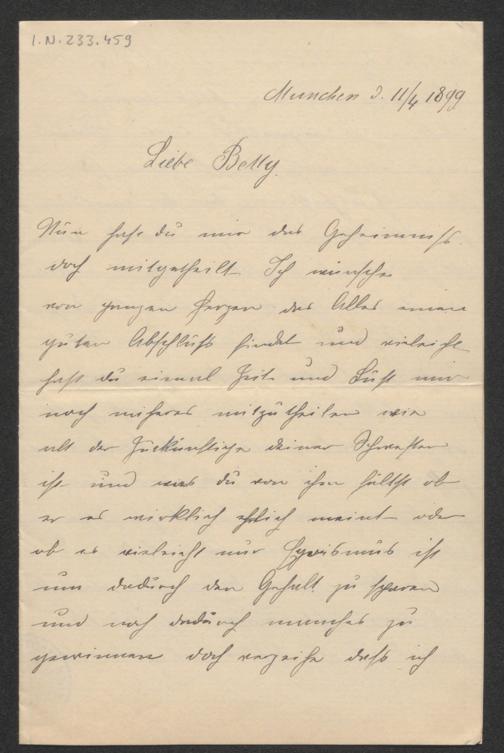 I.N. 233.459
München d. 11/4 1899
Liebe Betty
Nun hast du mir das Geheimniss
doch mitgetheilt Ich wünsche
von ganzen Herzen das Alles einen
guten Abschluss findet und vieleicht
hast du einmal Zeit und Lust mir
noch näheres mitzutheilen wie
alt der Zuckünftige deiner Schwester
ist und was du von ihm hältst ob
er es wirklich ehrlich meint oder
ob es vieleicht nur Egoismus ist
um dadurch den Gehalt zu sparen
und noch dadurch manches zu
gewinnen doch verzeihe dass ich